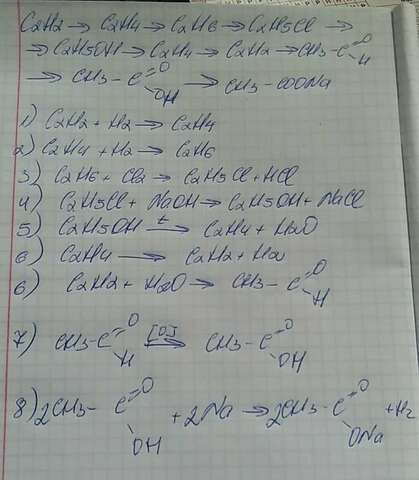 C2H2 → C2H4 → C2H6 → C2H5Cl →
→ C2H5OH → C2H4 → C2H2 → CH3-C=O H
→ CH3-C=O OH → CH3-COONa
1) C2H2 + H2 → C2H4
2) C2H4 + H2 → C2H6
3) C2H6 + Cl2 → C2H5Cl + HCl
4) C2H5Cl + NaOH → C2H5OH + NaCl
5) C2H5OH t→ C2H4 + H2O
6) C2H4 → C2H2 + H2
6) C2H2 + H2O → CH3-C=O H
7) CH3-C=O H [O]→ CH3-C=O OH
8) 2CH3-C=O OH + 2Na → 2CH3-C=O ONa + H2